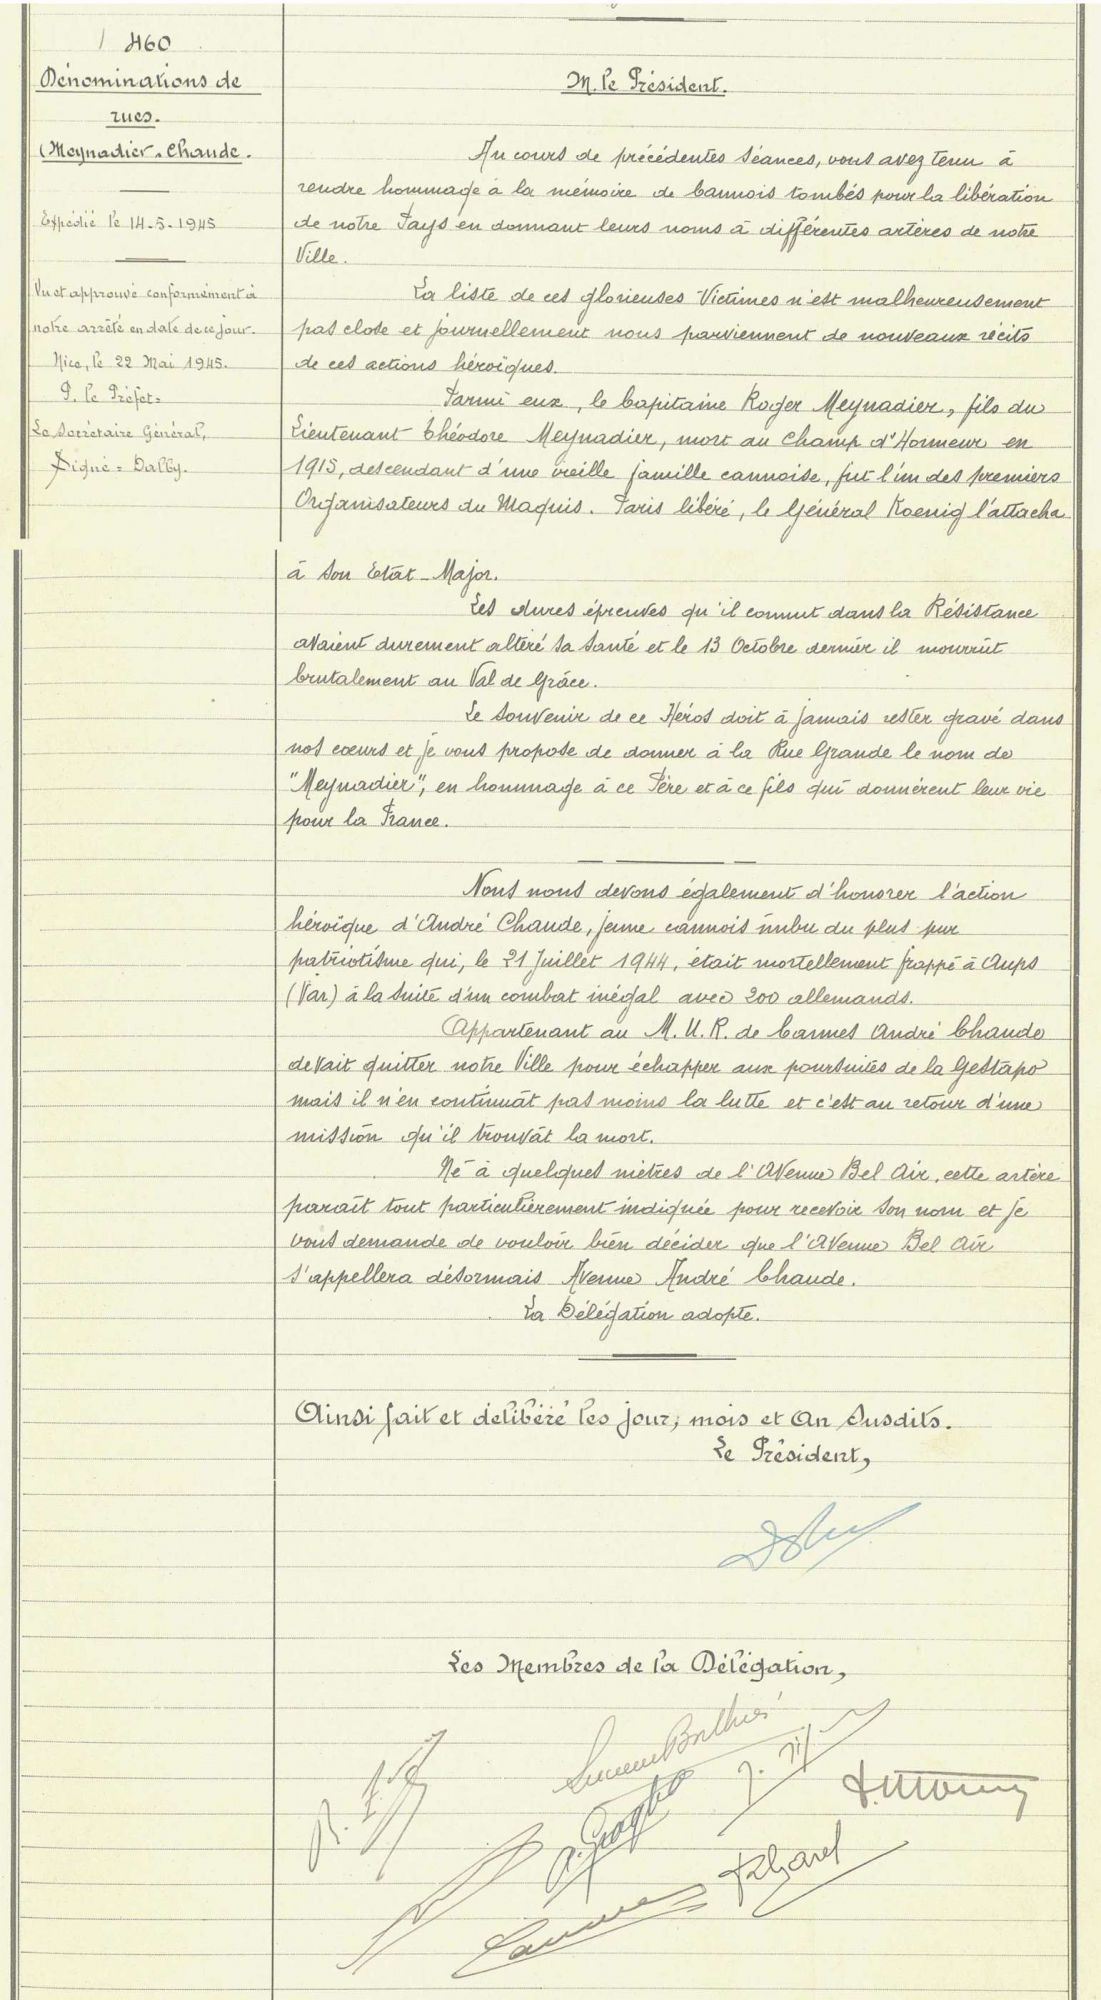 460
Dénominations de
rues.
(Meynadier. Chaude.
Expédié le 14-5-1945
Vu et approuvé conformément à
notre arrêté en date de ce jour.
Nice, le 22 Mai 1945.
P. le Préfet =
Le Secrétaire Général,
Signé = Dalby.
M. le Président.
Au cours de précédentes séances, vous avez tenu à
rendre hommage à la mémoire de Cannois tombés pour la libération
de notre Pays en donnant leurs noms à différentes artères de notre
Ville.
La liste de ces glorieuses Victimes n'est malheureusement
pas close et journellement nous parviennent de nouveaux récits
de ces actions héroïques.
Parmi eux, le Capitaine Roger Meynadier, fils du
Lieutenant Théodore Meynadier, mort au Champ d'Honneur en
1915, descendant d'une vieille famille cannoise, fut l'un des premiers
Organisateurs du Maquis. Paris libéré, le Général Koenig l'attacha
à son Etat-Major.
Les dures épreuves qu'il connut dans la Résistance
avaient durement altéré sa santé et le 13 Octobre dernier il mourrût
brutalement au Val de Grâce.
Le souvenir de ce Héros doit à jamais rester gravé dans
nos cœurs et je vous propose de donner à la Rue Grande le nom de
"Meynadier", en hommage à ce Père et à ce fils qui donnèrent leur vie
pour la France.
Nous nous devons également d'honorer l'action
héroïque d'André Chaude, jeune cannois imbu du plus pur
patriotisme qui, le 21 Juillet 1944, était mortellement frappé à Aups
(Var) à la suite d'un combat inégal avec 200 allemands.
Appartenant au M.U.R. de Cannes André Chaude
devait quitter notre Ville pour échapper aux poursuites de la Gestapo
mais il n'en continuât pas moins la lutte et c'est au retour d'une
mission qu'il trouvât la mort.
Né à quelques mètres de l'Avenue Bel Air, cette artère
parait tout particulièrement indiquée pour recevoir son nom et je
vous demande de vouloir bien décider que l'Avenue Bel Air
s'appellera désormais Avenue André Chaude.
La Délégation adopte.
Ainsi fait et délibéré les jour, mois et An susdits.
Le Président,
Les Membres de la Délégation,